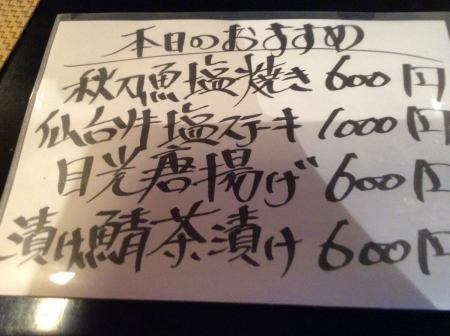 本日のおすすめ
秋刀魚塩焼き 600円
仙台牛塩ステキ 1000円
目光唐揚げ 600円
漬け鯖茶漬け 600円